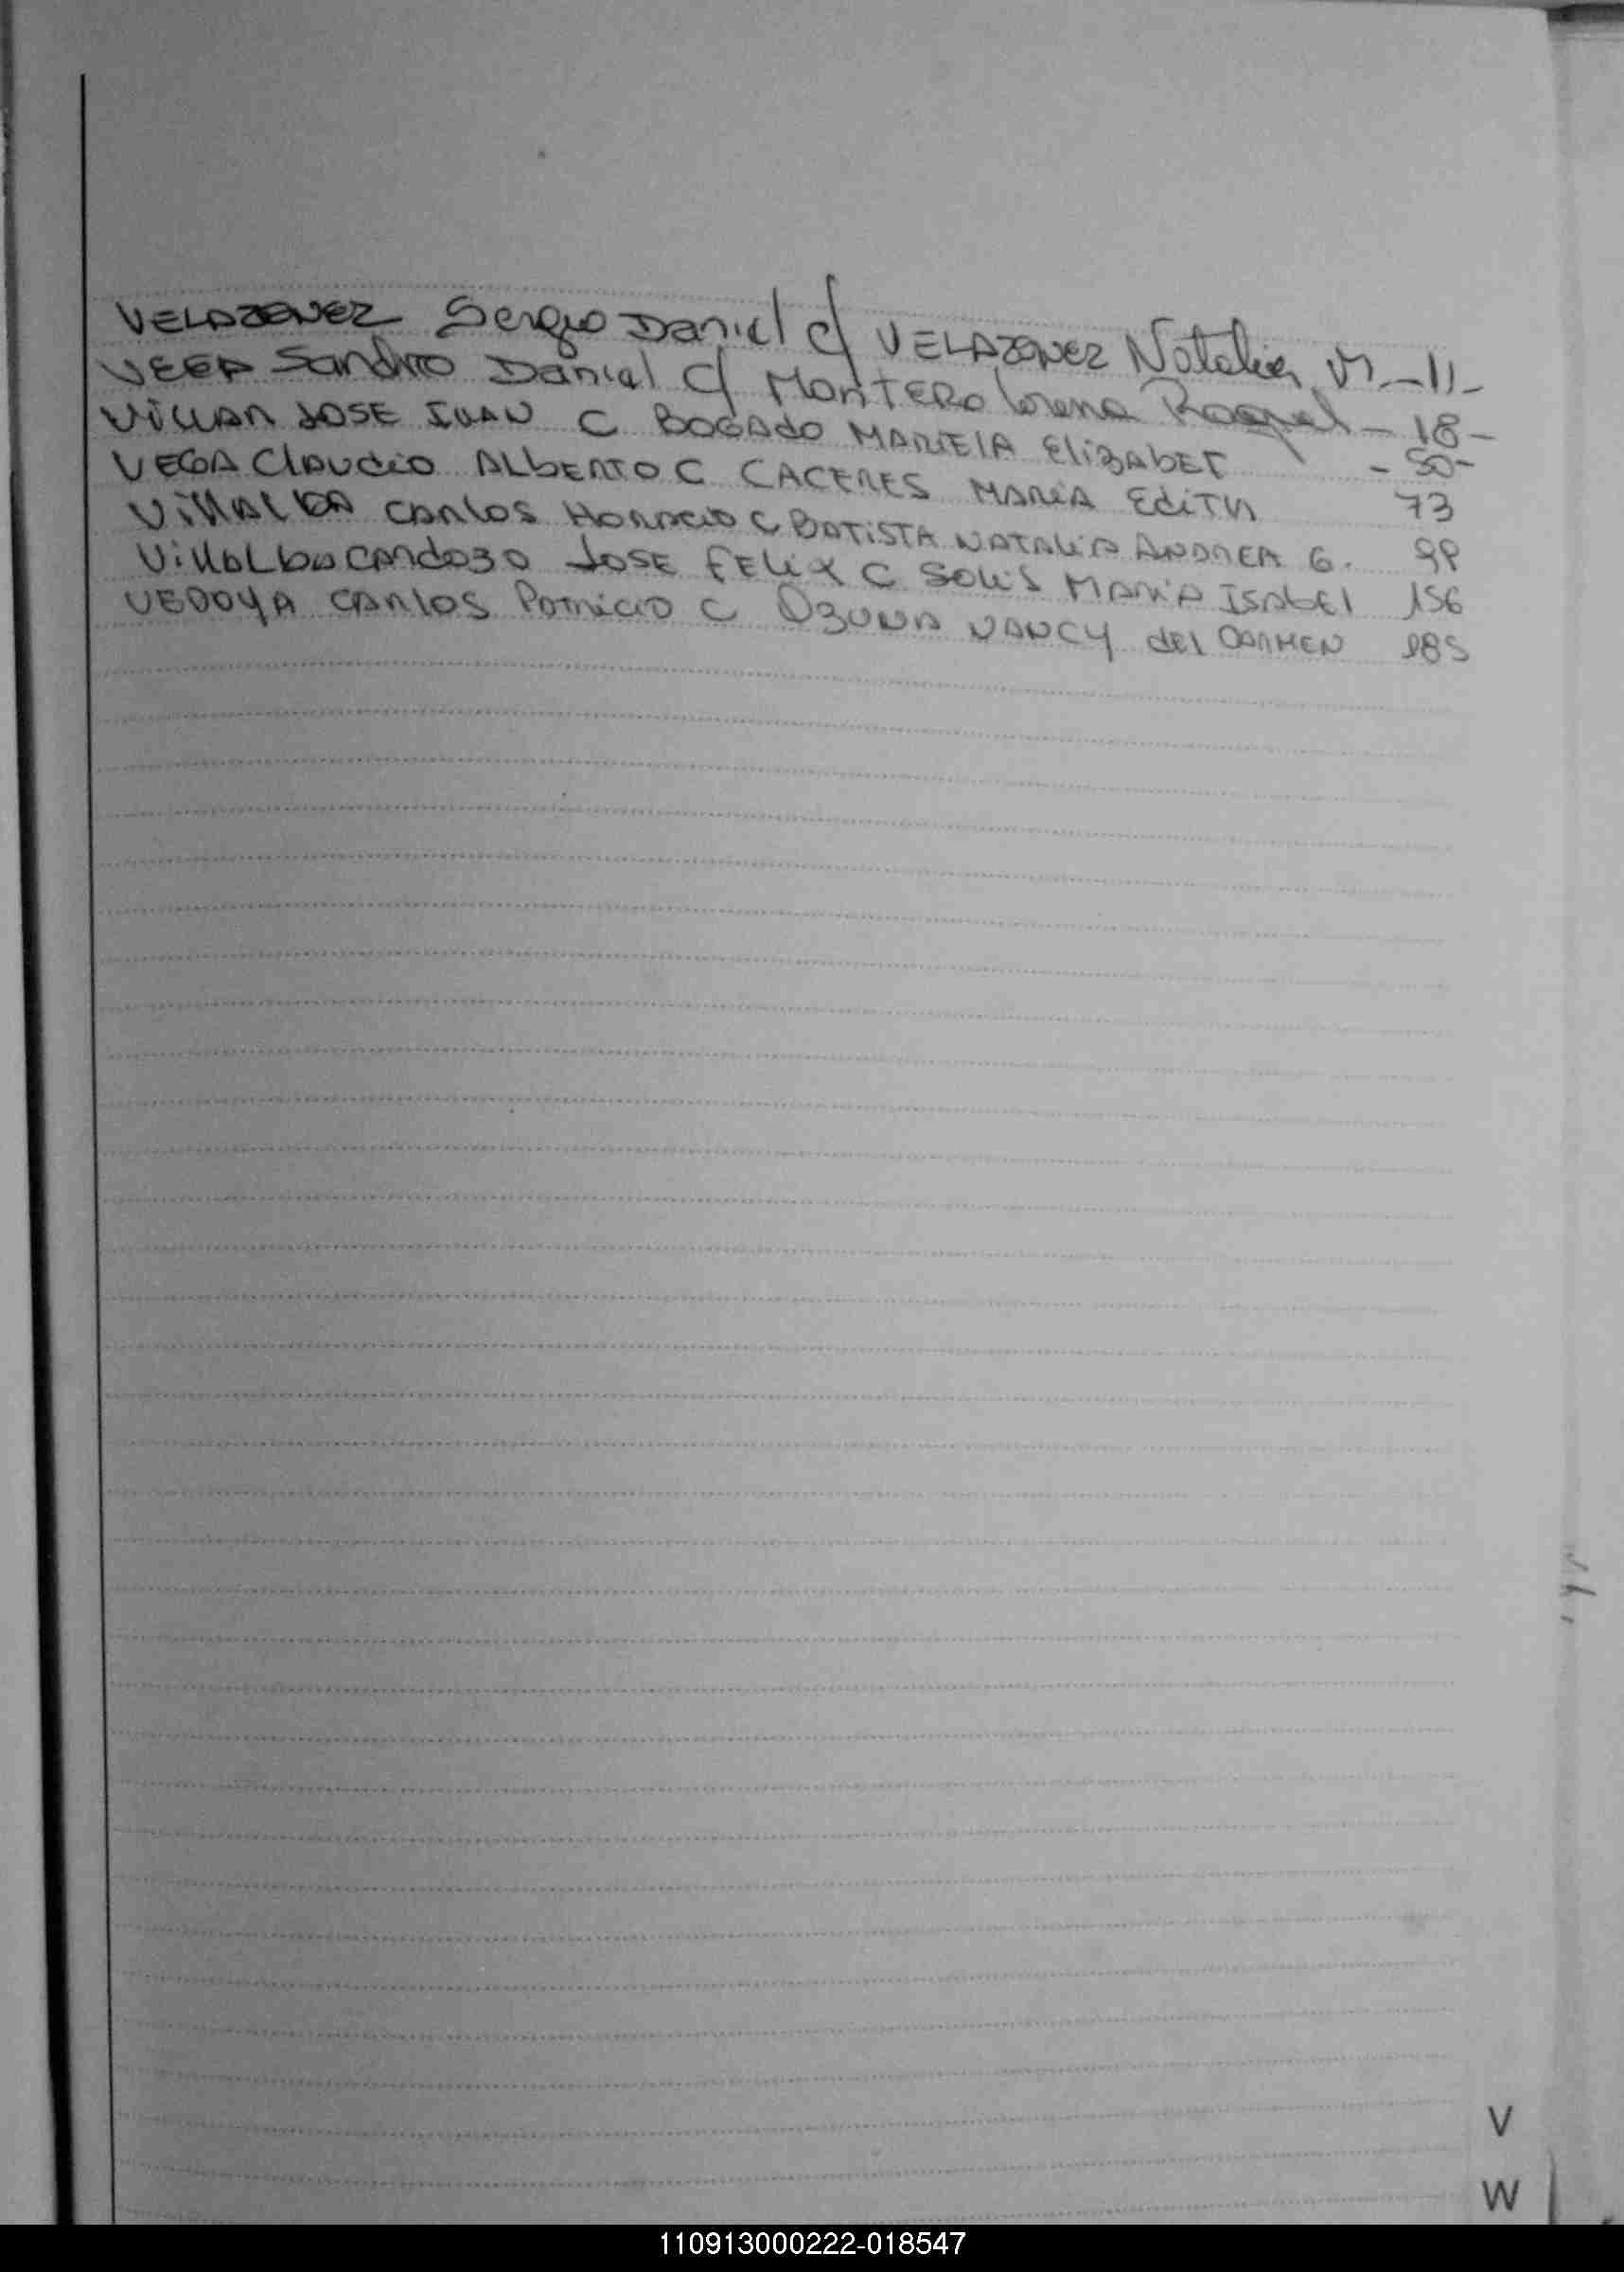 VELAZQUEZ Sergio Daniel c/ VELAZQUEZ Natalia M - 11 -
VEER Sandro Daniel c/ MONTERO Lorena Raquel - 18 -
VILLAR JOSE IVAN C BOGADO MARIELA ElizABET - 50 -
VEGA ClAUdio ALbERTO C CACERES MARIA EdiTH 73
VillALBA CARlos HORACIO C BATISTA NATALIA ANDREA G. 99
VillALbA CARdozo JOSE FELiX C SOLIS MARIA ISAbEl 156
VEDOYA CARlos PATRICIO C OZUNA NANCY del CARMEN 185
V
W
110913000222-018547